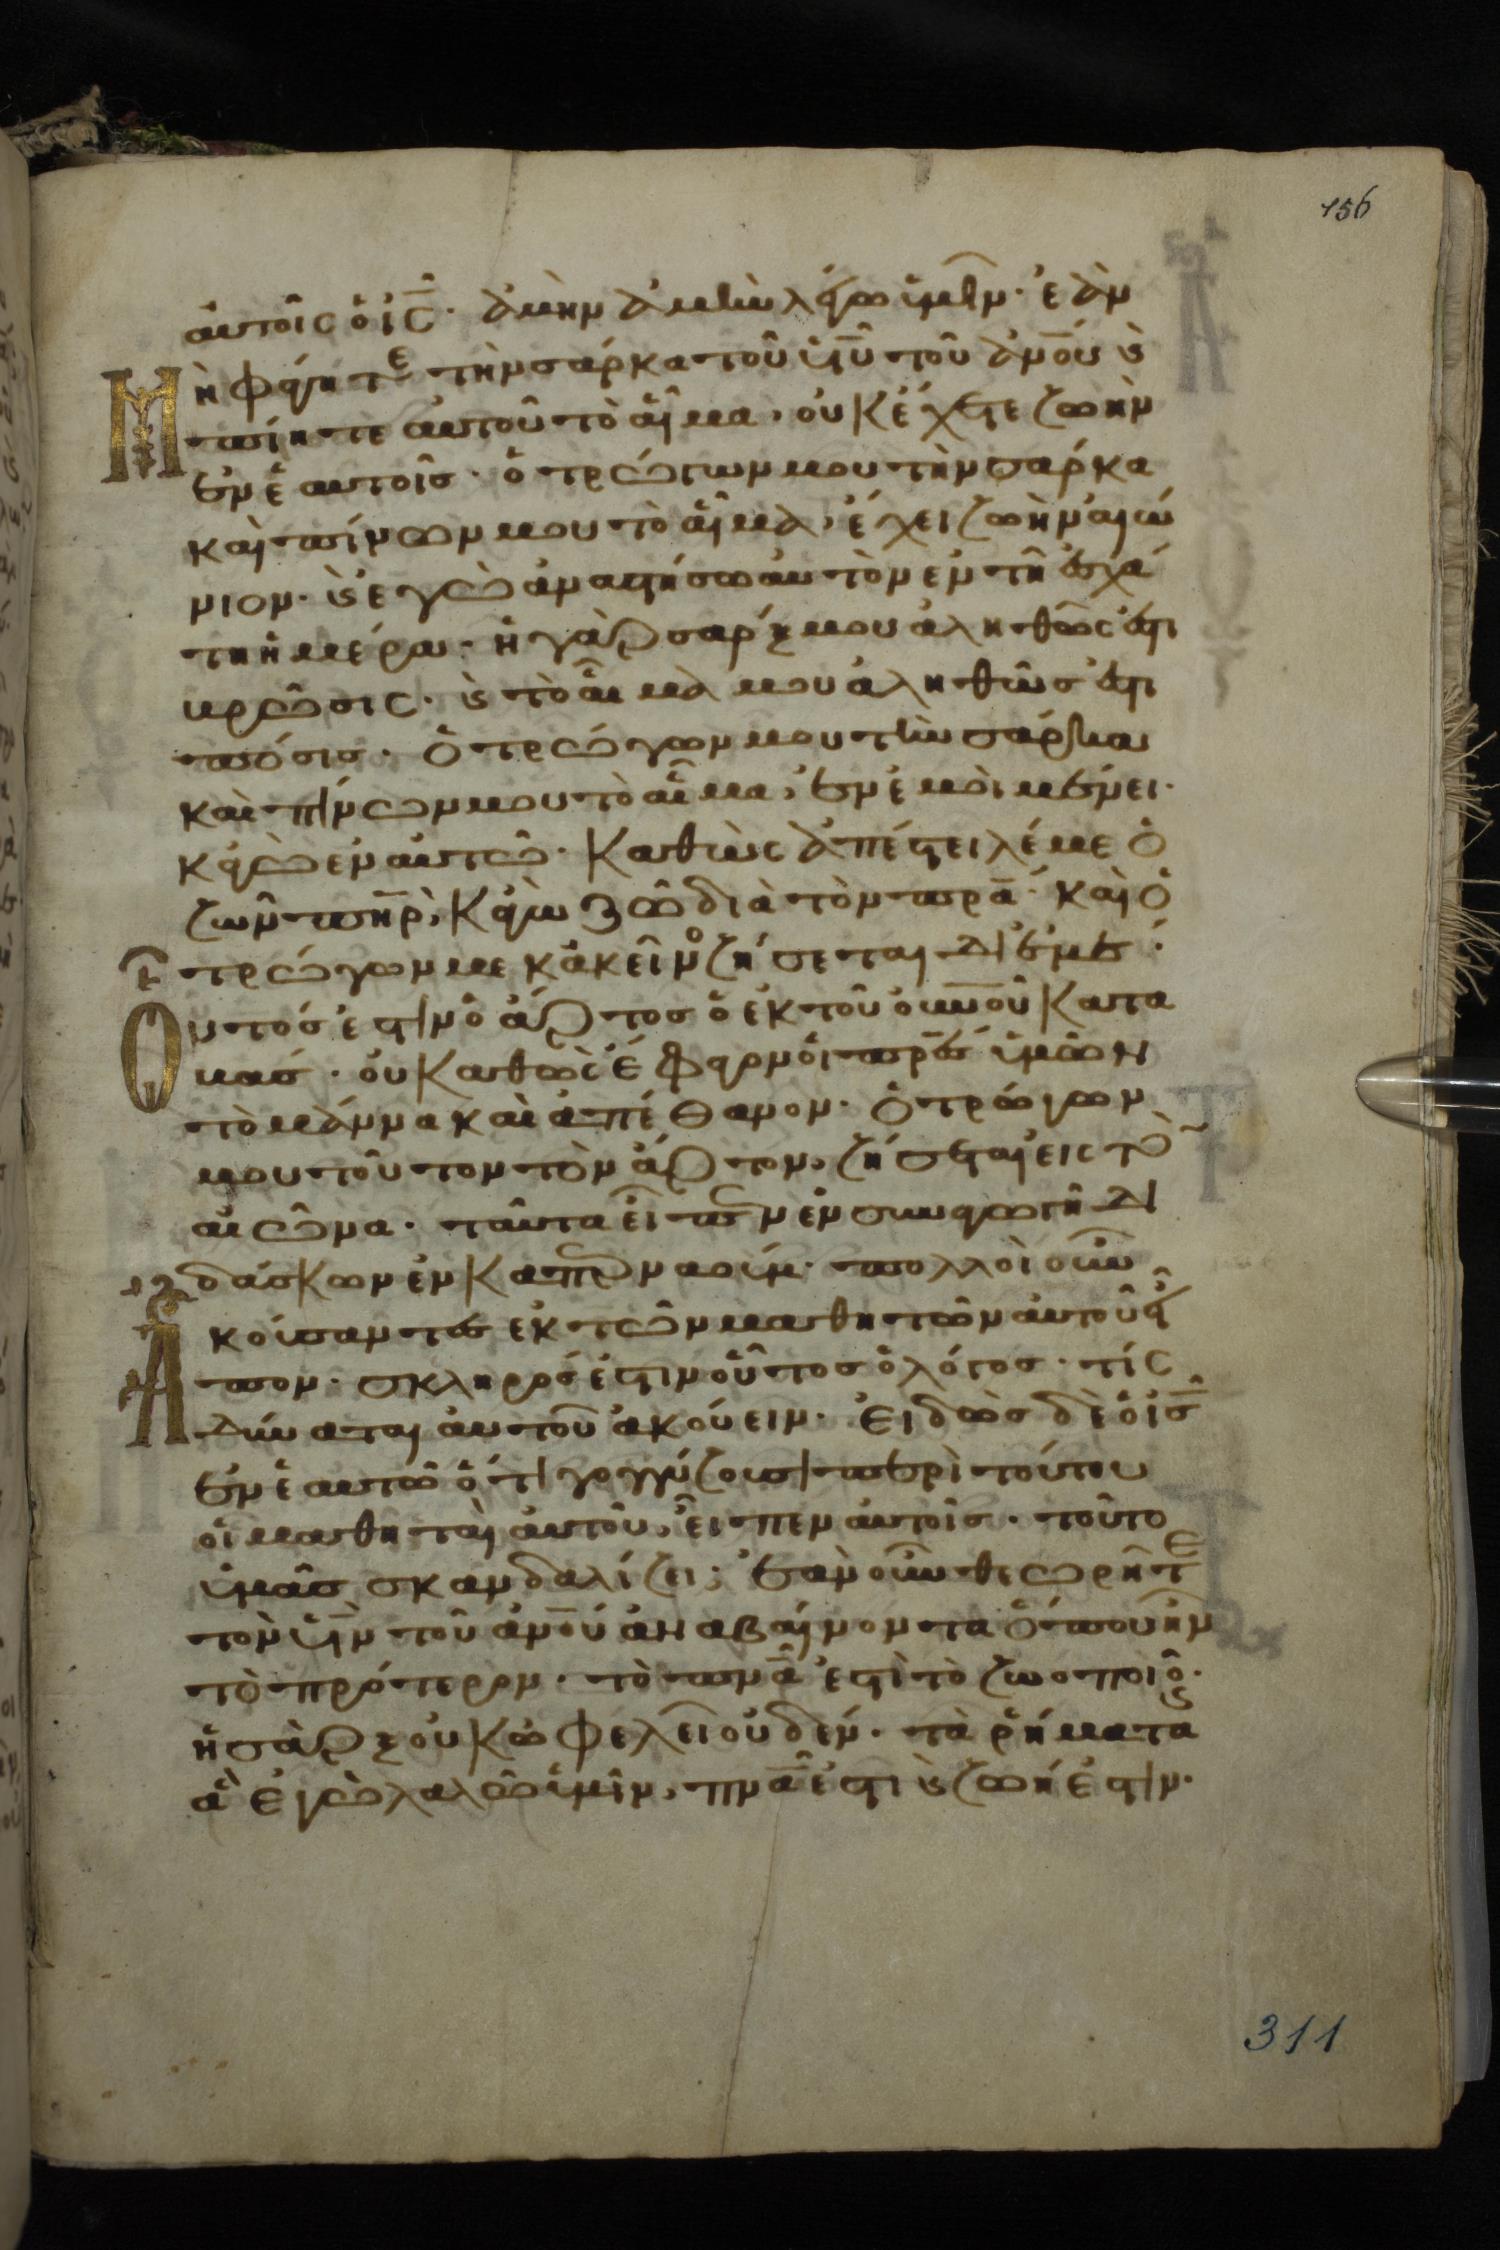 156
αὐτοῖς ὁ ἰς̅. ἀμὴν ἀμὴν λέγω ὑμῖν. ἐὰν
μὴ φάγητε τὴν σάρκα τοῦ υἱῦ τοῦ ἀνου ϗ
πίητε αὐτοῦ τὸ αἷμα, οὐκ ἔχετε ζωὴν
ἐν ἑαυτοῖς. ὁ τρώγων μου τὴν σάρκα
καὶ πίνων μου τὸ αἷμα, ἔχει ζωὴν αἰώ
νιον. ϗ ἐγὼ ἀναστήσω αὐτὸν ἐν τῆ ἐσχά
τη ἡμέρα. ἡ γὰρ σάρξ μου ἀληθῶς ἐστι
βρῶσις. ϗ τὸ αἷμά μου ἀληθῶς ἐστι
πόσις. ὁ τρώγων μου τὴν σάρκα
καὶ πίνων μου τὸ αἷμα, ἐν ἐμοὶ μένει.
κἀγὼ ἐν αὐτῶ. καθὼς ἀπέστειλέ με ὁ
ζῶν πηρ, κἀγὼ ζῶ διὰ τὸν πρα. καὶ ὁ
τρώγων με κἀκεῖνος ζήσεται δι ἐμέ.
Οὗτός ἐστιν ὁ ἄρτος ὁ ἐκ τοῦ οὐνοῦ κατα
βάς. οὐ καθὼς ἔφαγον οἱ πρες ὑμῶν
τὸ μάννα καὶ ἀπέθανον. ὁ τρώγων
μου τοῦτον τὸν ἄρτον, ζήσεται εἰς τὸν
αἰῶνα. ταῦτα εἶπεν ἐν συναγωγῆ δι
δάσκων ἐν καπερναούμ. πολλοὶ οὖν
Ἀκούσαντες ἐκ τῶν μαθητῶν αὐτοῦ εἶ
πον. σκληρός ἐστιν οὗτος ὁ λόγος. τίς
δύναται αὐτοῦ ἀκούειν. εἰδὼς δὲ ὁ ἰς̅
ἐν ἑαυτῶ ὅτι γογγύζουσι περὶ τούτου
οἱ μαθηταὶ αὐτοῦ, εἶπεν αὐτοῖς. τοῦτο
ὑμᾶς σκανδαλίζει; ἐὰν οὖν θεωρῆτε
τὸν υἱν τοῦ ἀνου ἀναβαίνοντα ὅπου ἦν
τὸ πρότερον. τὸ πνα ἐστὶ τὸ ζωοποιοῦ.
ἡ σὰρξ οὐκ ὠφελεῖ οὐδέν. τὰ ῥήματα
ἃ ἐγὼ λαλῶ ὑμῖν, πνα ἐστι ϗ ζωή ἐστιν.
311